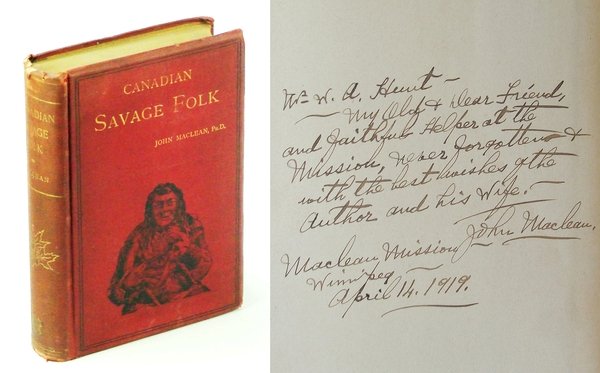 CANADIAN
SAVAGE FOLK
JOHN MACLEAN, PH.D.
CANADIAN
SAVAGE
FOLK
Mr. W. A. Hunt –
– My Old & Dear Friend,
and Faithful Helper at the
Mission, never forgotten &
with the best wishes of the
Author and his Wife. –
John Maclean.
Maclean Mission
Winnipeg
April 14. 1919.